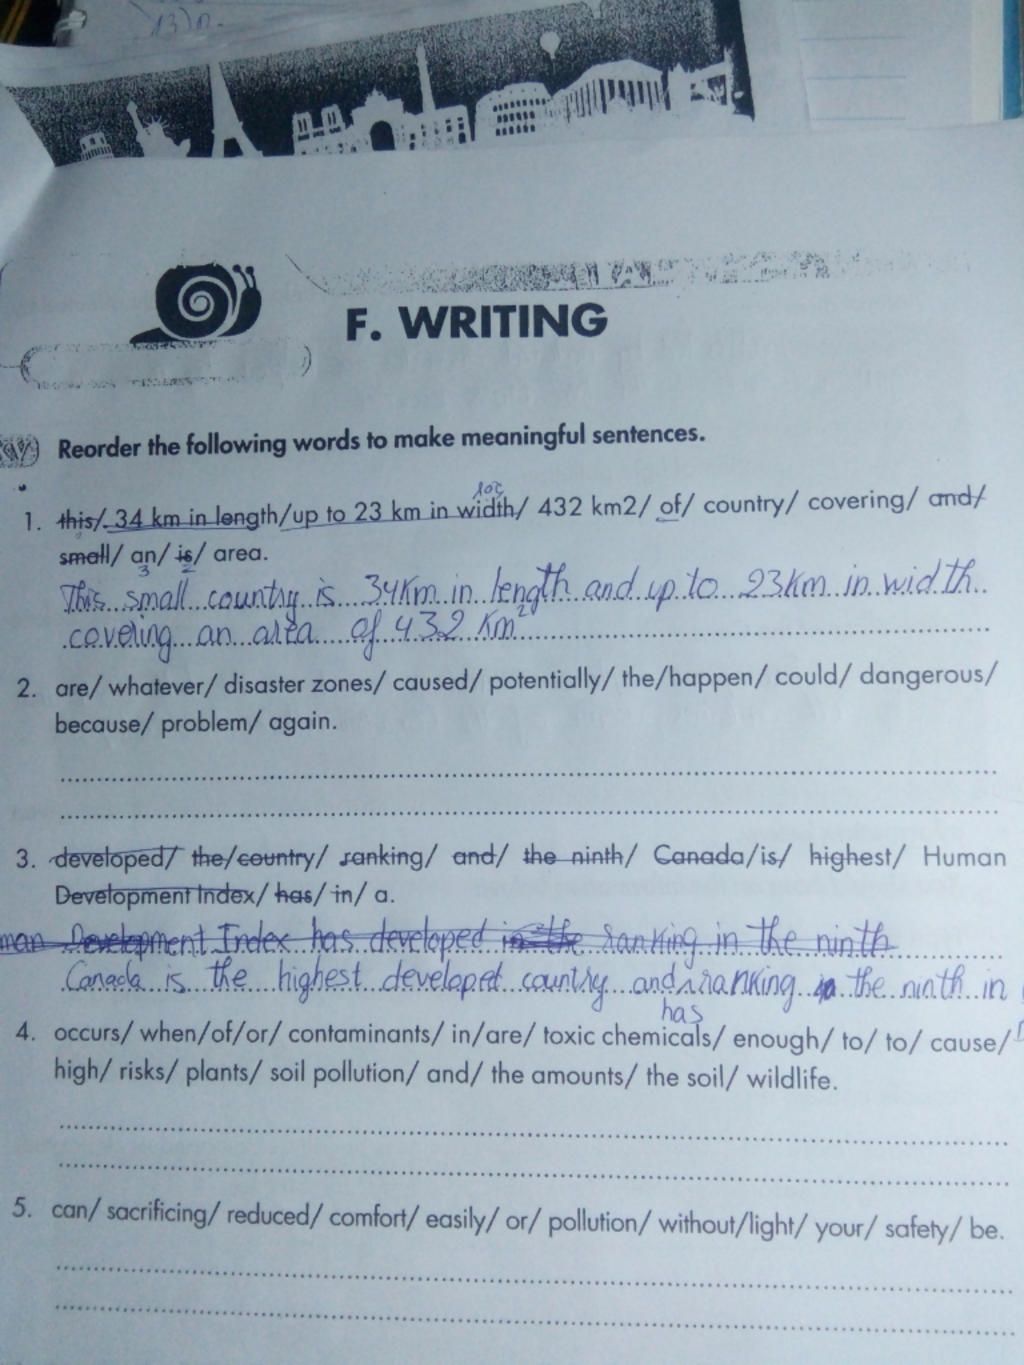 F. WRITING
Reorder the following words to make meaningful sentences.
1. this/ 34 km in length/up to 23 km in width/ 432 km2/ of/ country/ covering/ and/
small/ an/ is/ area.
3 2
This small country is 34Km in length and up to 23Km in width
covering an area of 432 Km²
2. are/ whatever/ disaster zones/ caused/ potentially/ the/happen/ could/ dangerous/
because/ problem/ again.
3. developed/ the/country/ ranking/ and/ the ninth/ Canada/is/ highest/ Human
Development Index/ has/ in/ a.
man Development Index has developed in the ranking in the ninth
Canada is the highest developed country and ranking the ninth in
has
4. occurs/ when/of/or/ contaminants/ in/are/ toxic chemicals/ enough/ to/ to/ cause/
high/ risks/ plants/ soil pollution/ and/ the amounts/ the soil/ wildlife.
5. can/ sacrificing/ reduced/ comfort/ easily/ or/ pollution/ without/light/ your/ safety/ be.